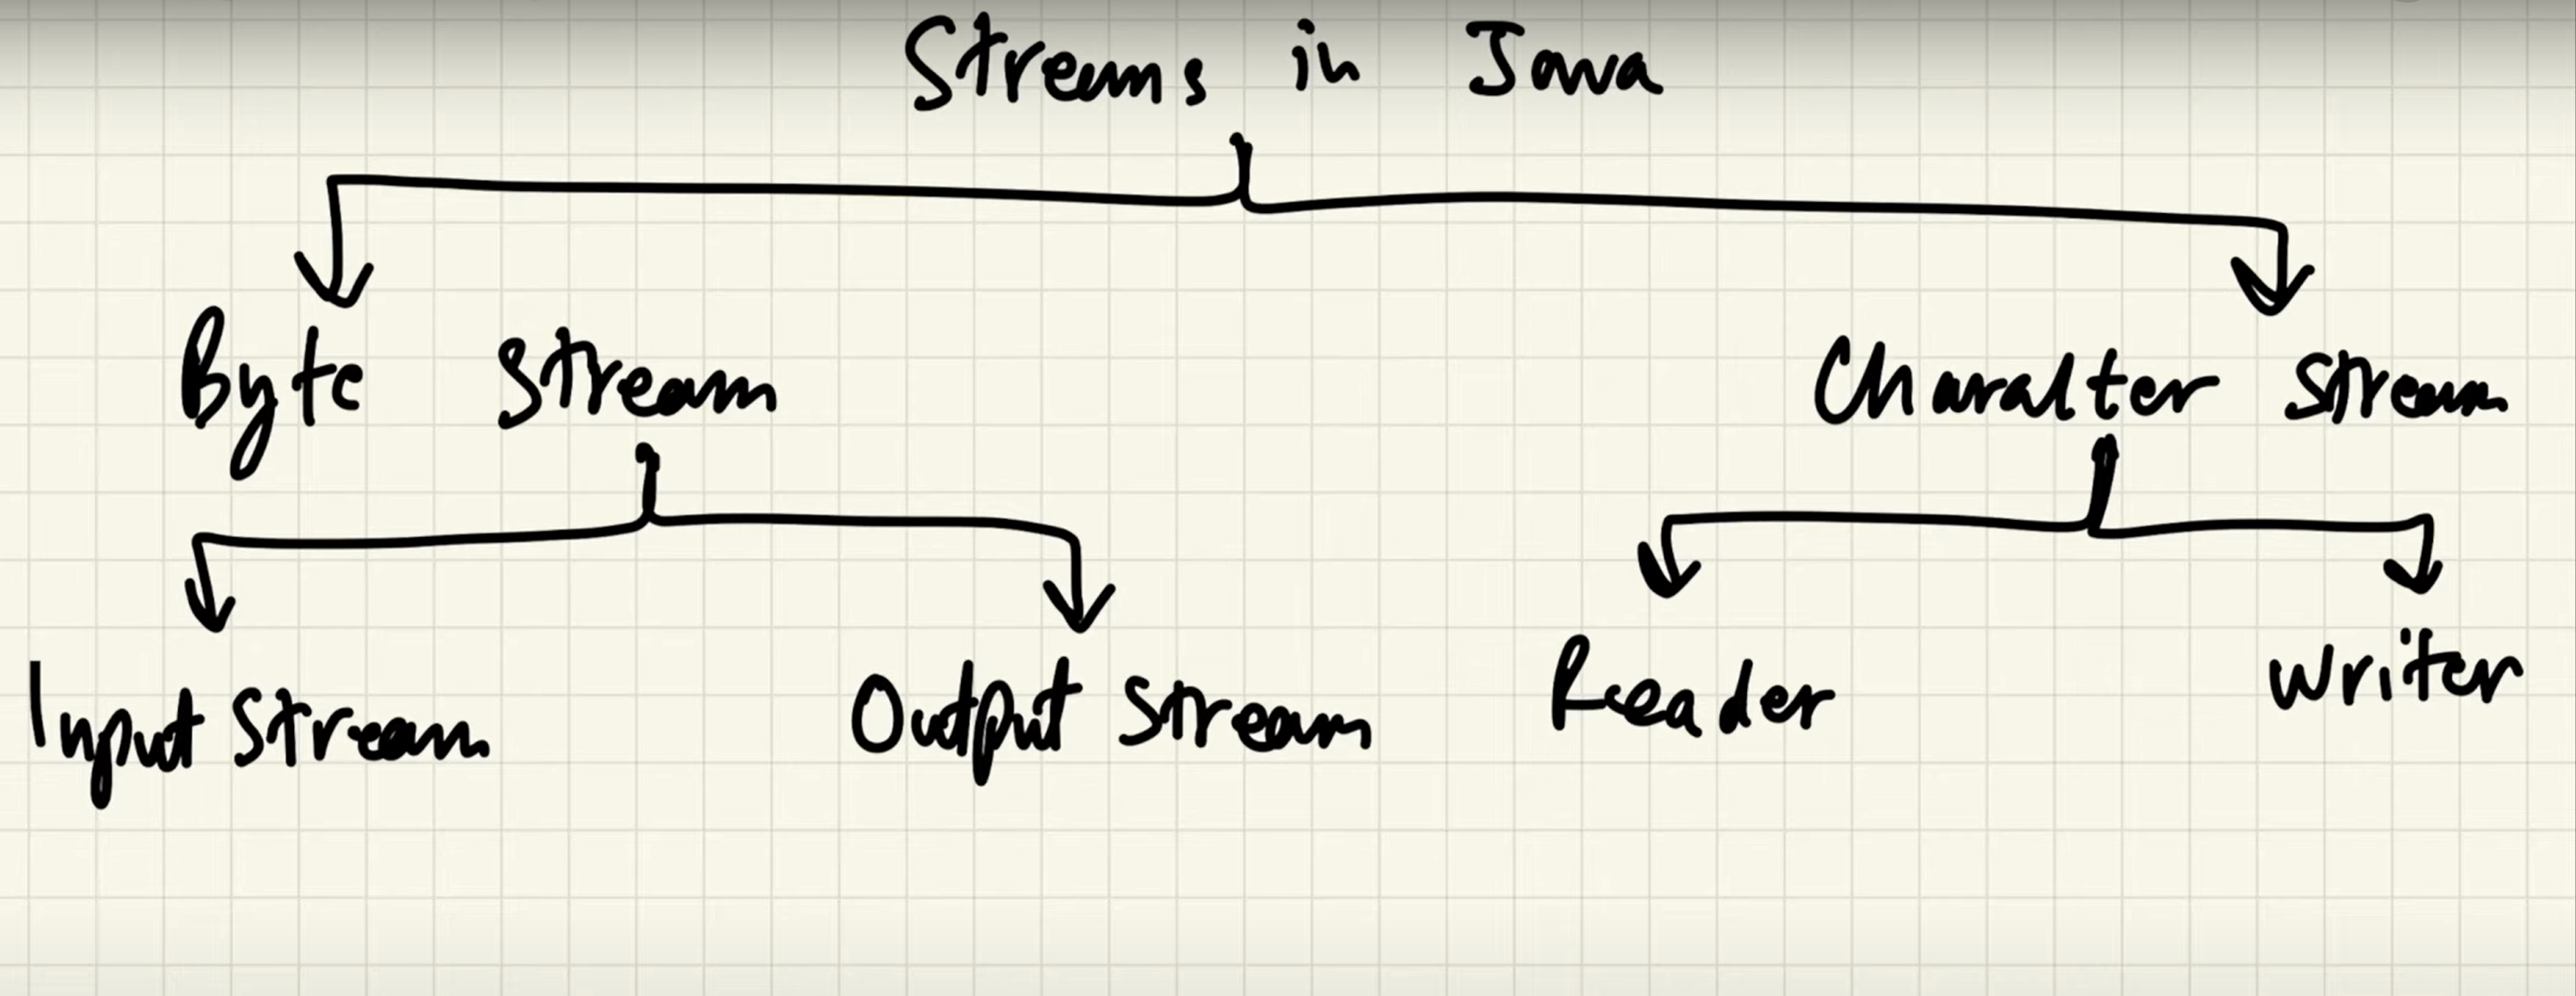 Streams in Java
Byte Stream
Character Stream
Input Stream
Output Stream
Reader
Writer